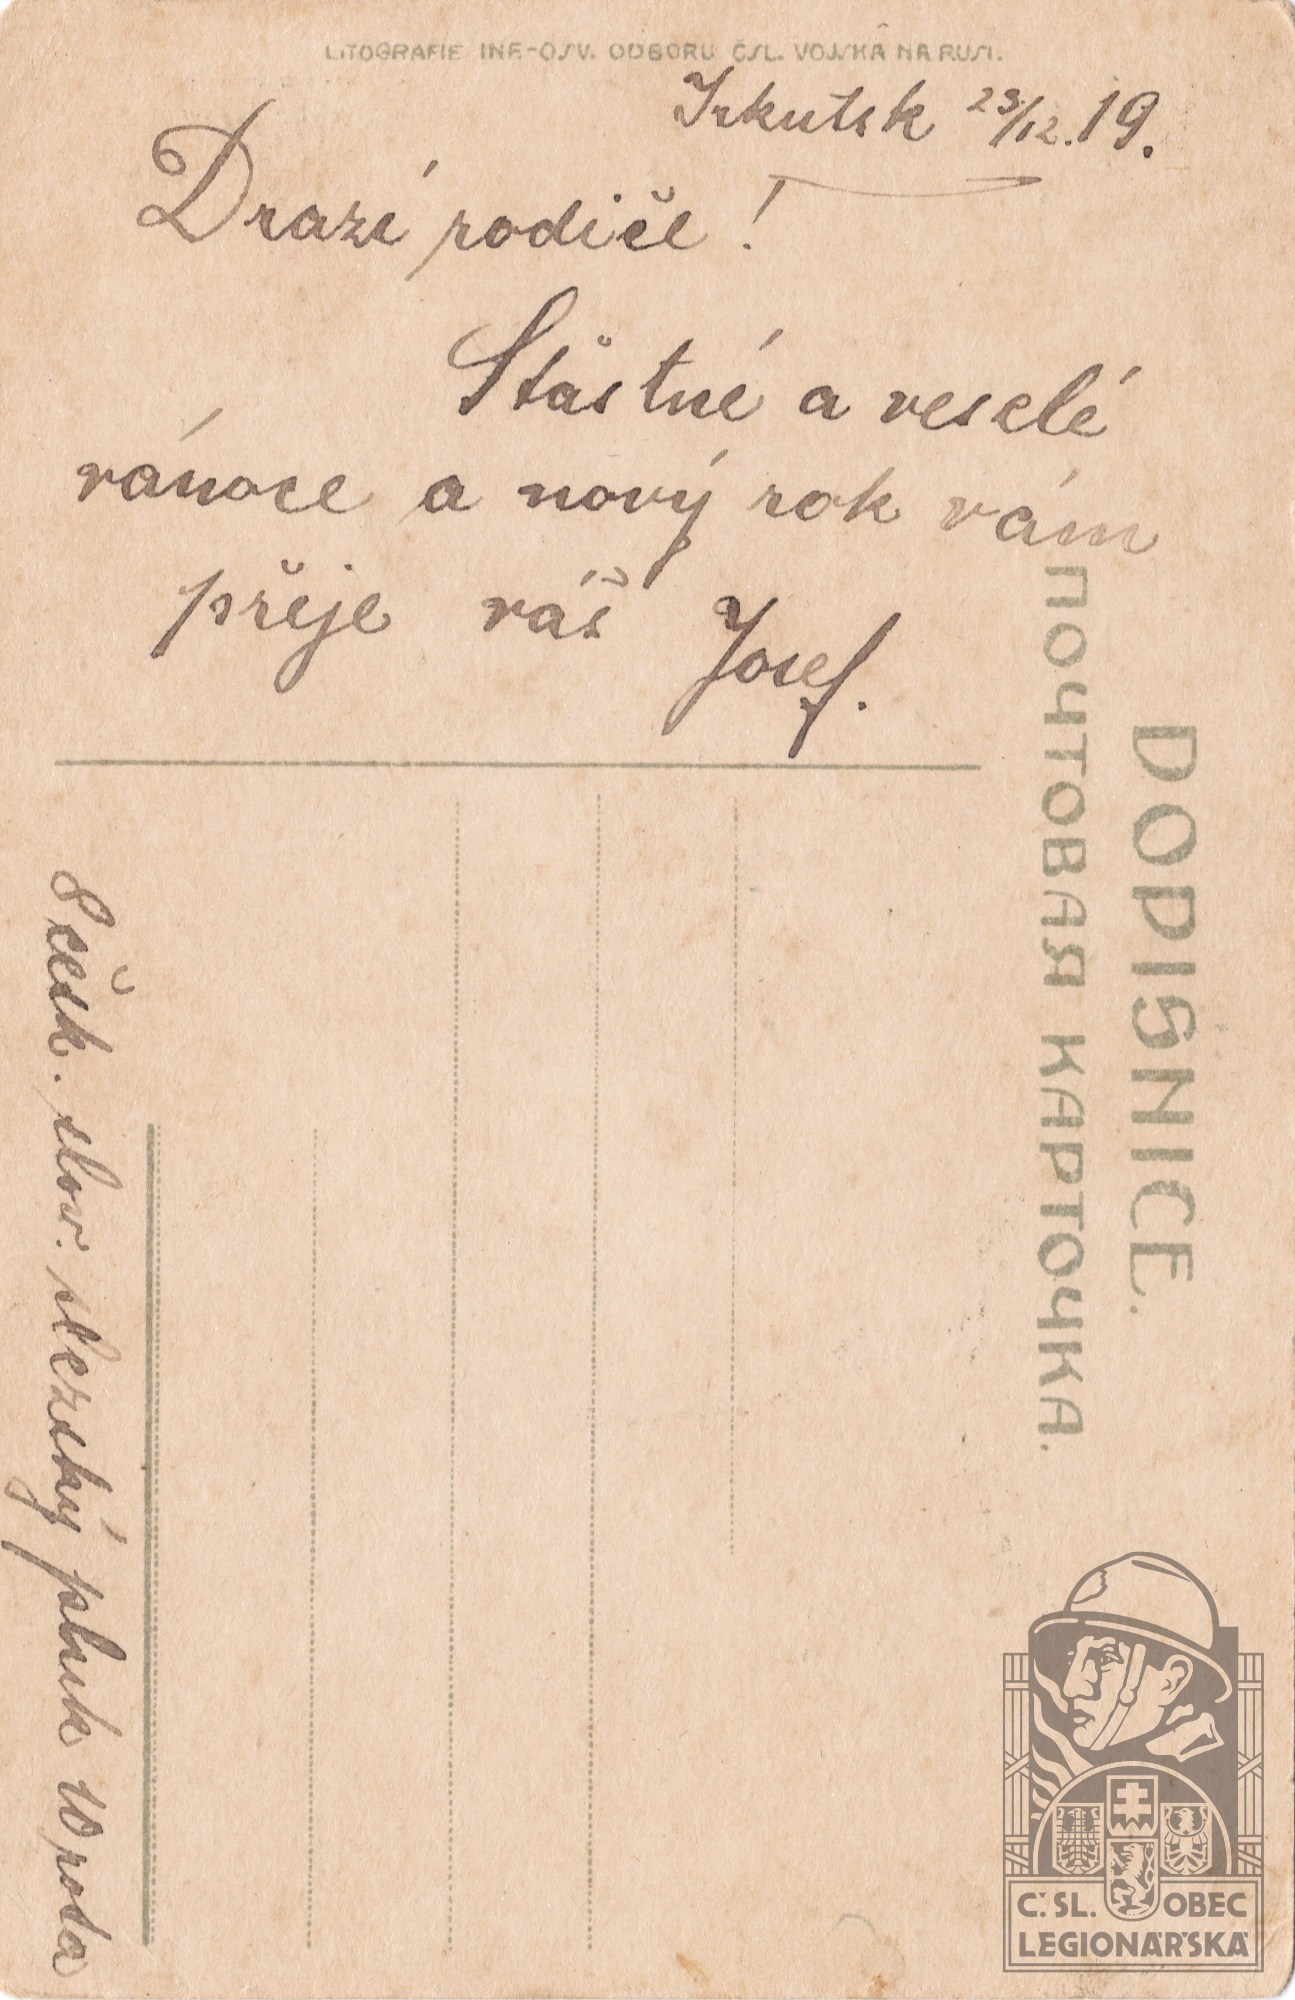 LITOGRAFIE INF-OSV. ODBORU ČSL. VOJSKA NA RUSI.
Irkutsk 23/12.19.
Drazí rodiče!
Štastné a veselé
vánoce a nový rok vám
přeje váš Josef.
DOPISNICE.
ПОЧТОВАЯ КАРТОЧКА.
česk. slov. slezský pluk 10 rota
Č.SL. OBEC
LEGIONÁŘSKÁ